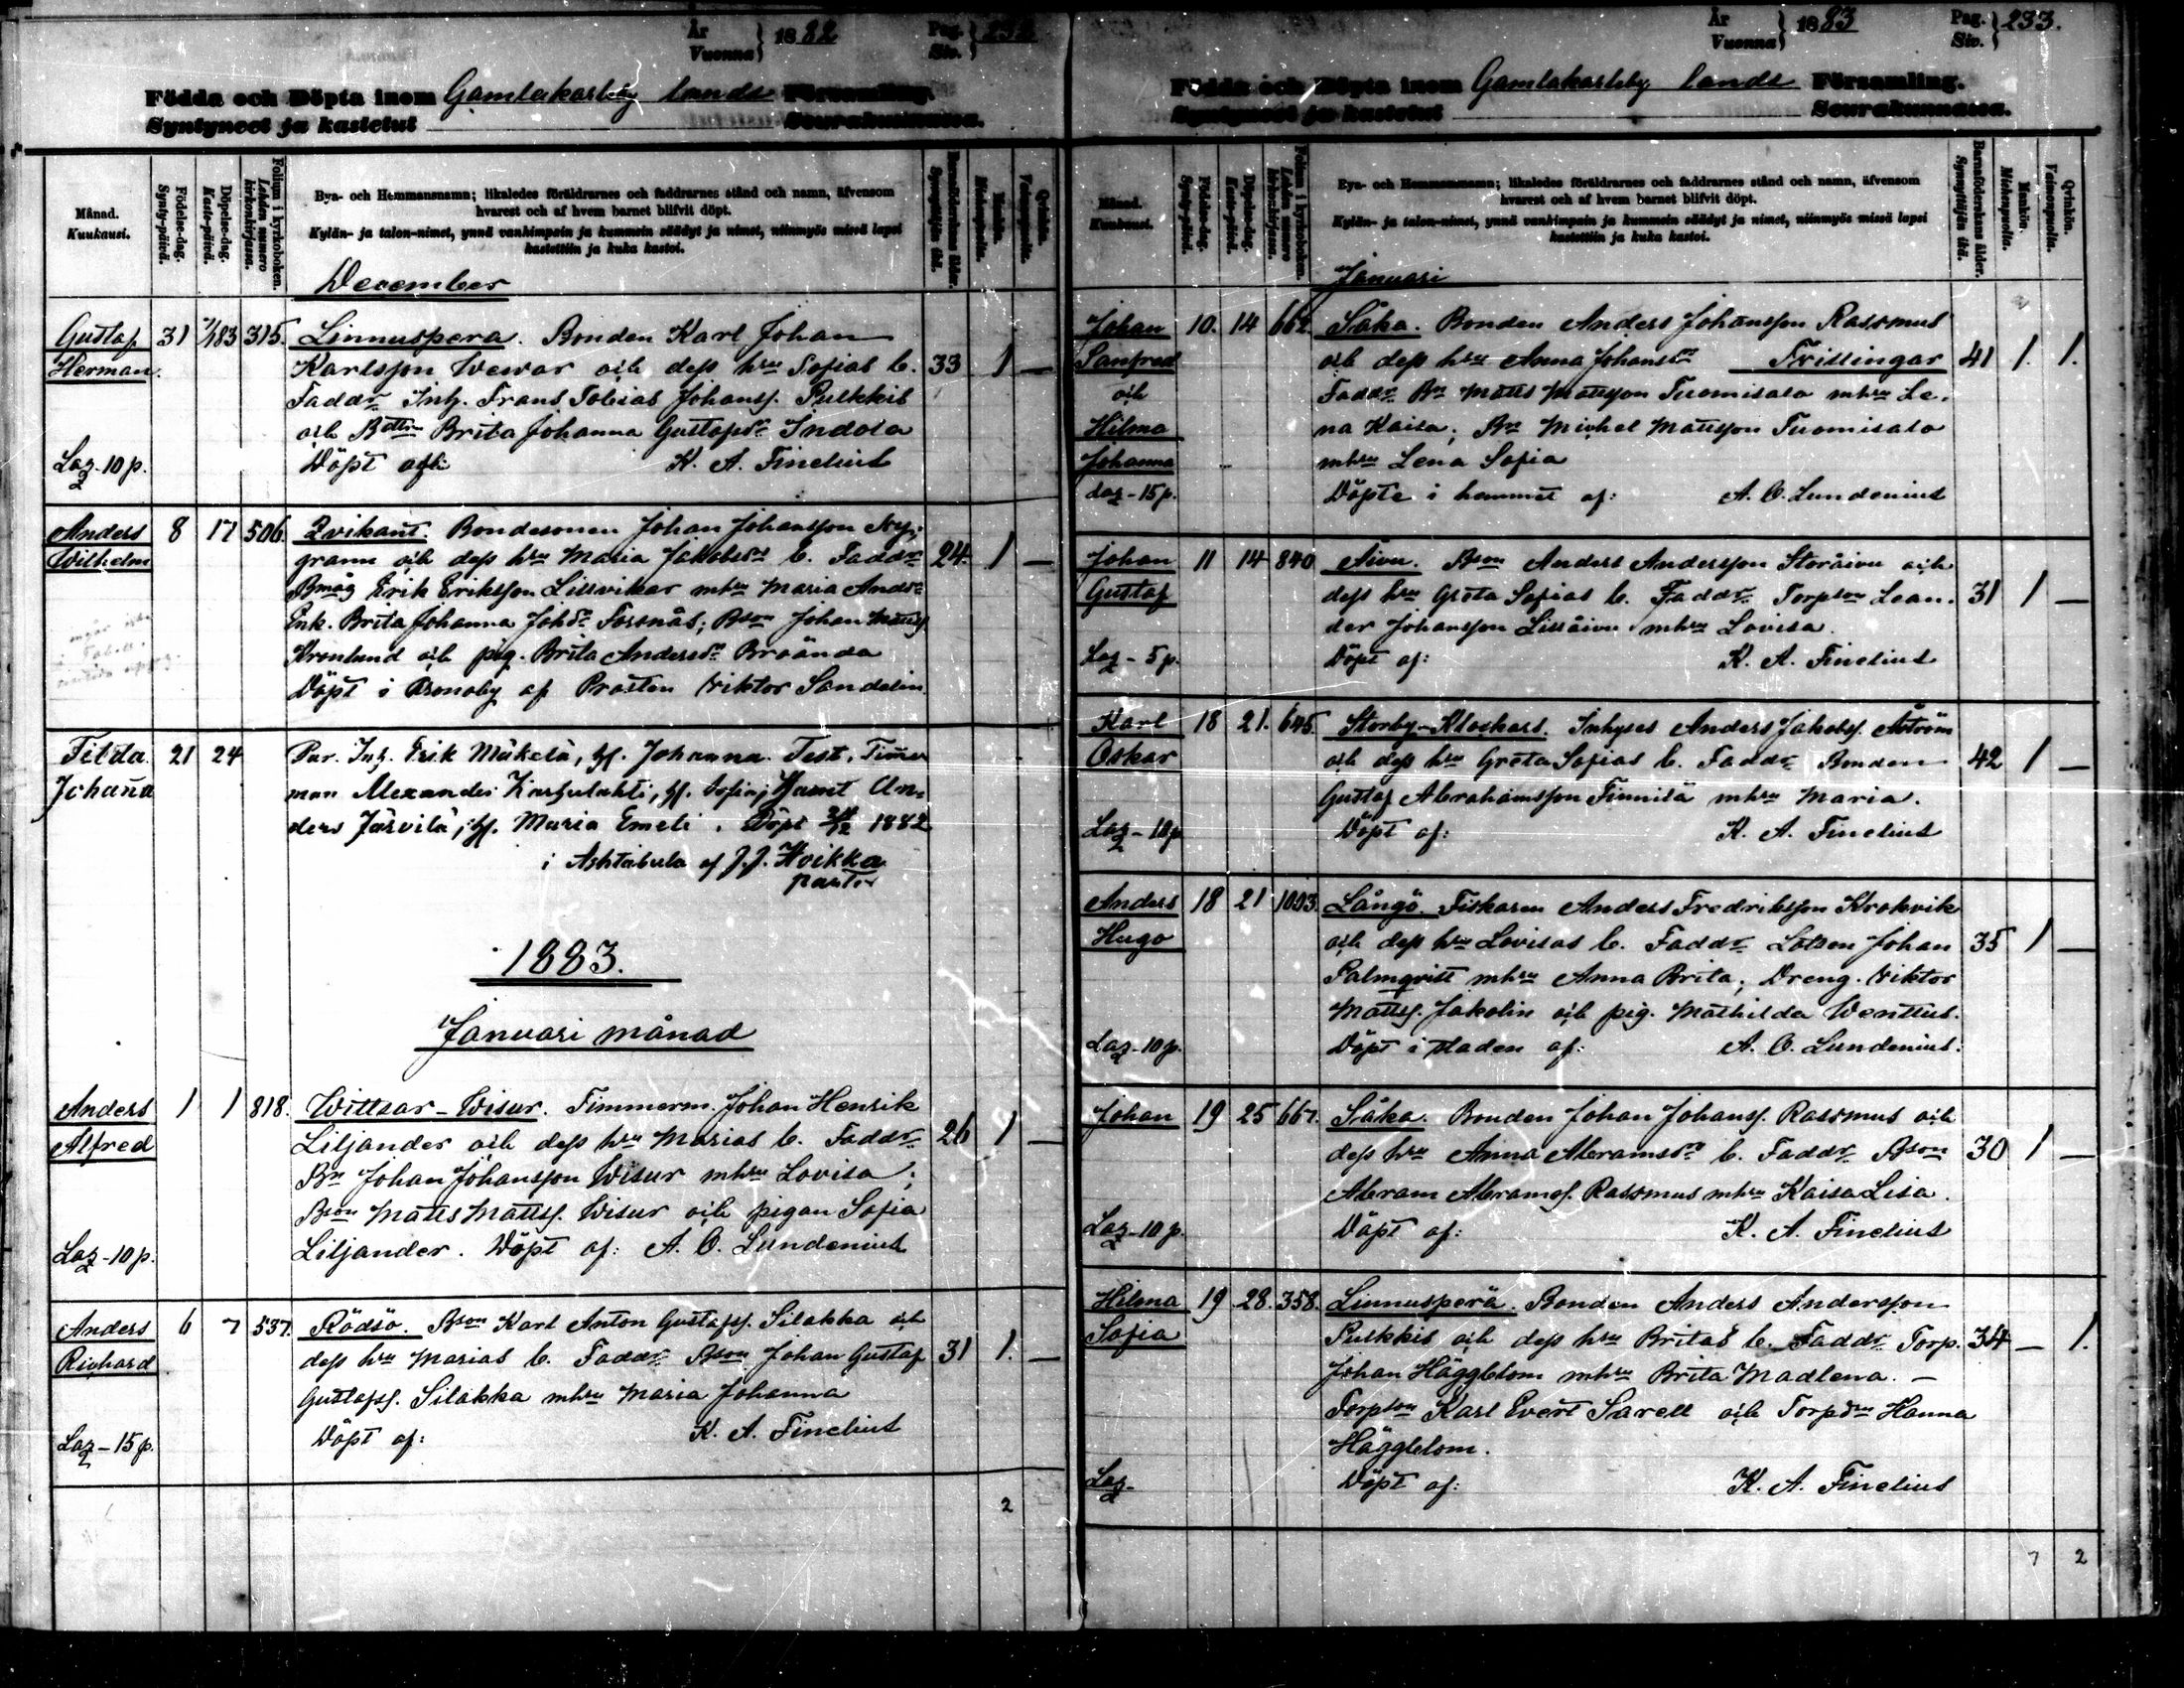 År Vuonna } 1882 Pag. Siv. } 232
Födda och Döpta inom Gamlakarleby lands Församling.
Syntyneet ja kastetut Seurakunnassa.
Månad. Kuukausi.
Födelse-dag. Synty-päivä.
Döpelse-dag. Kaste-päivä.
Folium i kyrkoboken. Lehden numero kirkonkirjassa.
Bya- och Hemmansnamn; likaledes föräldrarnes och faddrarnes stånd och namn, äfvensom
hvarest och af hvem barnet blifvit döpt.
Kylän- ja talon-nimet, ynnä vanhimpain ja kummein säädyt ja nimet, niinmyös missä lapsi
kastettiin ja kuka kastoi.
Barnaföderskans ålder. Synnyttäjän ikä.
Mankön. Miehenpuolia.
Qvinkön. Vaimonpuolia.
December
Gustaf 31 7/1 83 315. Linnuspera. Bonden Karl Johan
Herman. Karlsson Wewar och dess hru Sofias b. 33 1 —
Faddr Inh. Frans Tobias Johanss. Pulkkis
och Bdttrn Brita Johanna Gustafsdr Indola
Laz-10 p. Döpt af: K. A. Finelius
Anders 8 17 506. Qvikant. Bondesonen Johan Johansson Ny-
Wilhelm grann och dess hru Maria Jakobsdrs b. Faddr 24. 1 —
Bmåg Erik Eriksson Lillvikar mhru Maria Andr
Enk. Brita Johanna Johdr Forsnäs; Bson Johan Matts.
Kronlund och pig. Brita Andersdr Broända
Döpt i Kronoby af Prosten Viktor Sandelin
Tilda 21 24 Par. Inh. Erik Mäkelä, H. Johanna. Test. Timer
Johanna man Alexander, H. Sofia; Hemit An-
ders Järvilä; H. Maria Emeli. Döpt 24/12 1882
i Ashtabula af J. J. Hoikka
pastor
1883.
Januari månad
Anders 1 1 818. Wittsar-Wisur. Timmerm. Johan Henrik
Alfred Liljander och dess hru Marias b. Faddr 26 1 —
Bn Johan Johansson Wisur mhru Lovisa;
Bson Matts Mattss. Wisur och pigan Sofia
Laz-10 p. Liljander. Döpt af: A. O. Lundenius
Anders 6 7 537. Rödsö. Bson Karl Anton Gustafss. Silakka och
Richard dess hru Marias b. Faddr Bson Johan Gustaf 31 1. —
Gustafss. Silakka mhru Maria Johanna
Laz-15 p. Döpt af: K. A. Finelius
2
År Vuonna } 1883 Pag. Siv. } 233.
Födda och Döpta inom Gamlakarleby lands Församling.
Syntyneet ja kastetut Seurakunnassa.
Månad. Kuukausi.
Födelse-dag. Synty-päivä.
Döpelse-dag. Kaste-päivä.
Folium i kyrkoboken. Lehden numero kirkonkirjassa.
Bya- och Hemmansnamn; likaledes föräldrarnes och faddrarnes stånd och namn, äfvensom
hvarest och af hvem barnet blifvit döpt.
Kylän- ja talon-nimet, ynnä vanhimpain ja kummein säädyt ja nimet, niinmyös missä lapsi
kastettiin ja kuka kastoi.
Barnaföderskans ålder. Synnyttäjän ikä.
Mankön. Miehenpuolia.
Qvinkön. Vaimonpuolia.
Januari
Johan 10. 14 662. Såka. Bonden Anders Johansson Rassmus
Sanfred och dess hru Anna Johansdr Trillingar 41 1. 1.
och Faddr Bn Matts Mattsson Tuomisalo mhru Le-
Hilma na Kaisa; Bn Michel Mattsson Tuomisalo
Johanna mhru Lena Sofia
Laz-15 p. Döpte i hemmet af: A. O. Lundenius
Johan 11 14 840 Åivu. Bson Anders Andersson Storåivu och
Gustaf dess hru Greta Sofias b. Faddr Torpson Lean- 31 1 —
der Johansson Lillåivu mhru Lovisa.
Laz-5 p. Döpt af: K. A. Finelius
Karl 18 21. 645. Storby-Klockars. Inhyses Anders Jakobss. Åström
Oskar och dess hru Greta Sofias b. Faddr Bonden 42 1 —
Gustaf Abrahamsson Finnilä mhru Maria.
Laz-10 p. Döpt af: K. A. Finelius
Anders 18 21 1003. Långö. Fiskaren Anders Fredriksson Krokvik
Hugo och dess hru Lovisas b. Faddr Lotsen Johan 35 1 —
Palmqvist mhru Anna Brita; Dreng. Viktor
Mattss. Jakolin och pig. Mathilda Wenttus.
Laz-10 p. Döpt i staden af: A. O. Lundenius.
Johan 19 25 667. Såka. Bonden Johan Johanss. Rassmus och
dess hru Anna Abramsdrs b. Faddr Bson 30 1 —
Abram Abramss. Rassmus mhru Kaisa Lisa.
Laz-10 p. Döpt af: K. A. Finelius
Hilma 19 28. 358. Linnusperä. Bonden Anders Andersson
Sofia Pulkkis och dess hru Britas b. Faddr Torp. 34 — 1.
Johan Häggblom mhru Brita Madlena. —
Torpson Karl Evert Sarell och Torpdrn Hanna
Häggblom.
Laz- Döpt af: K. A. Finelius
7 2